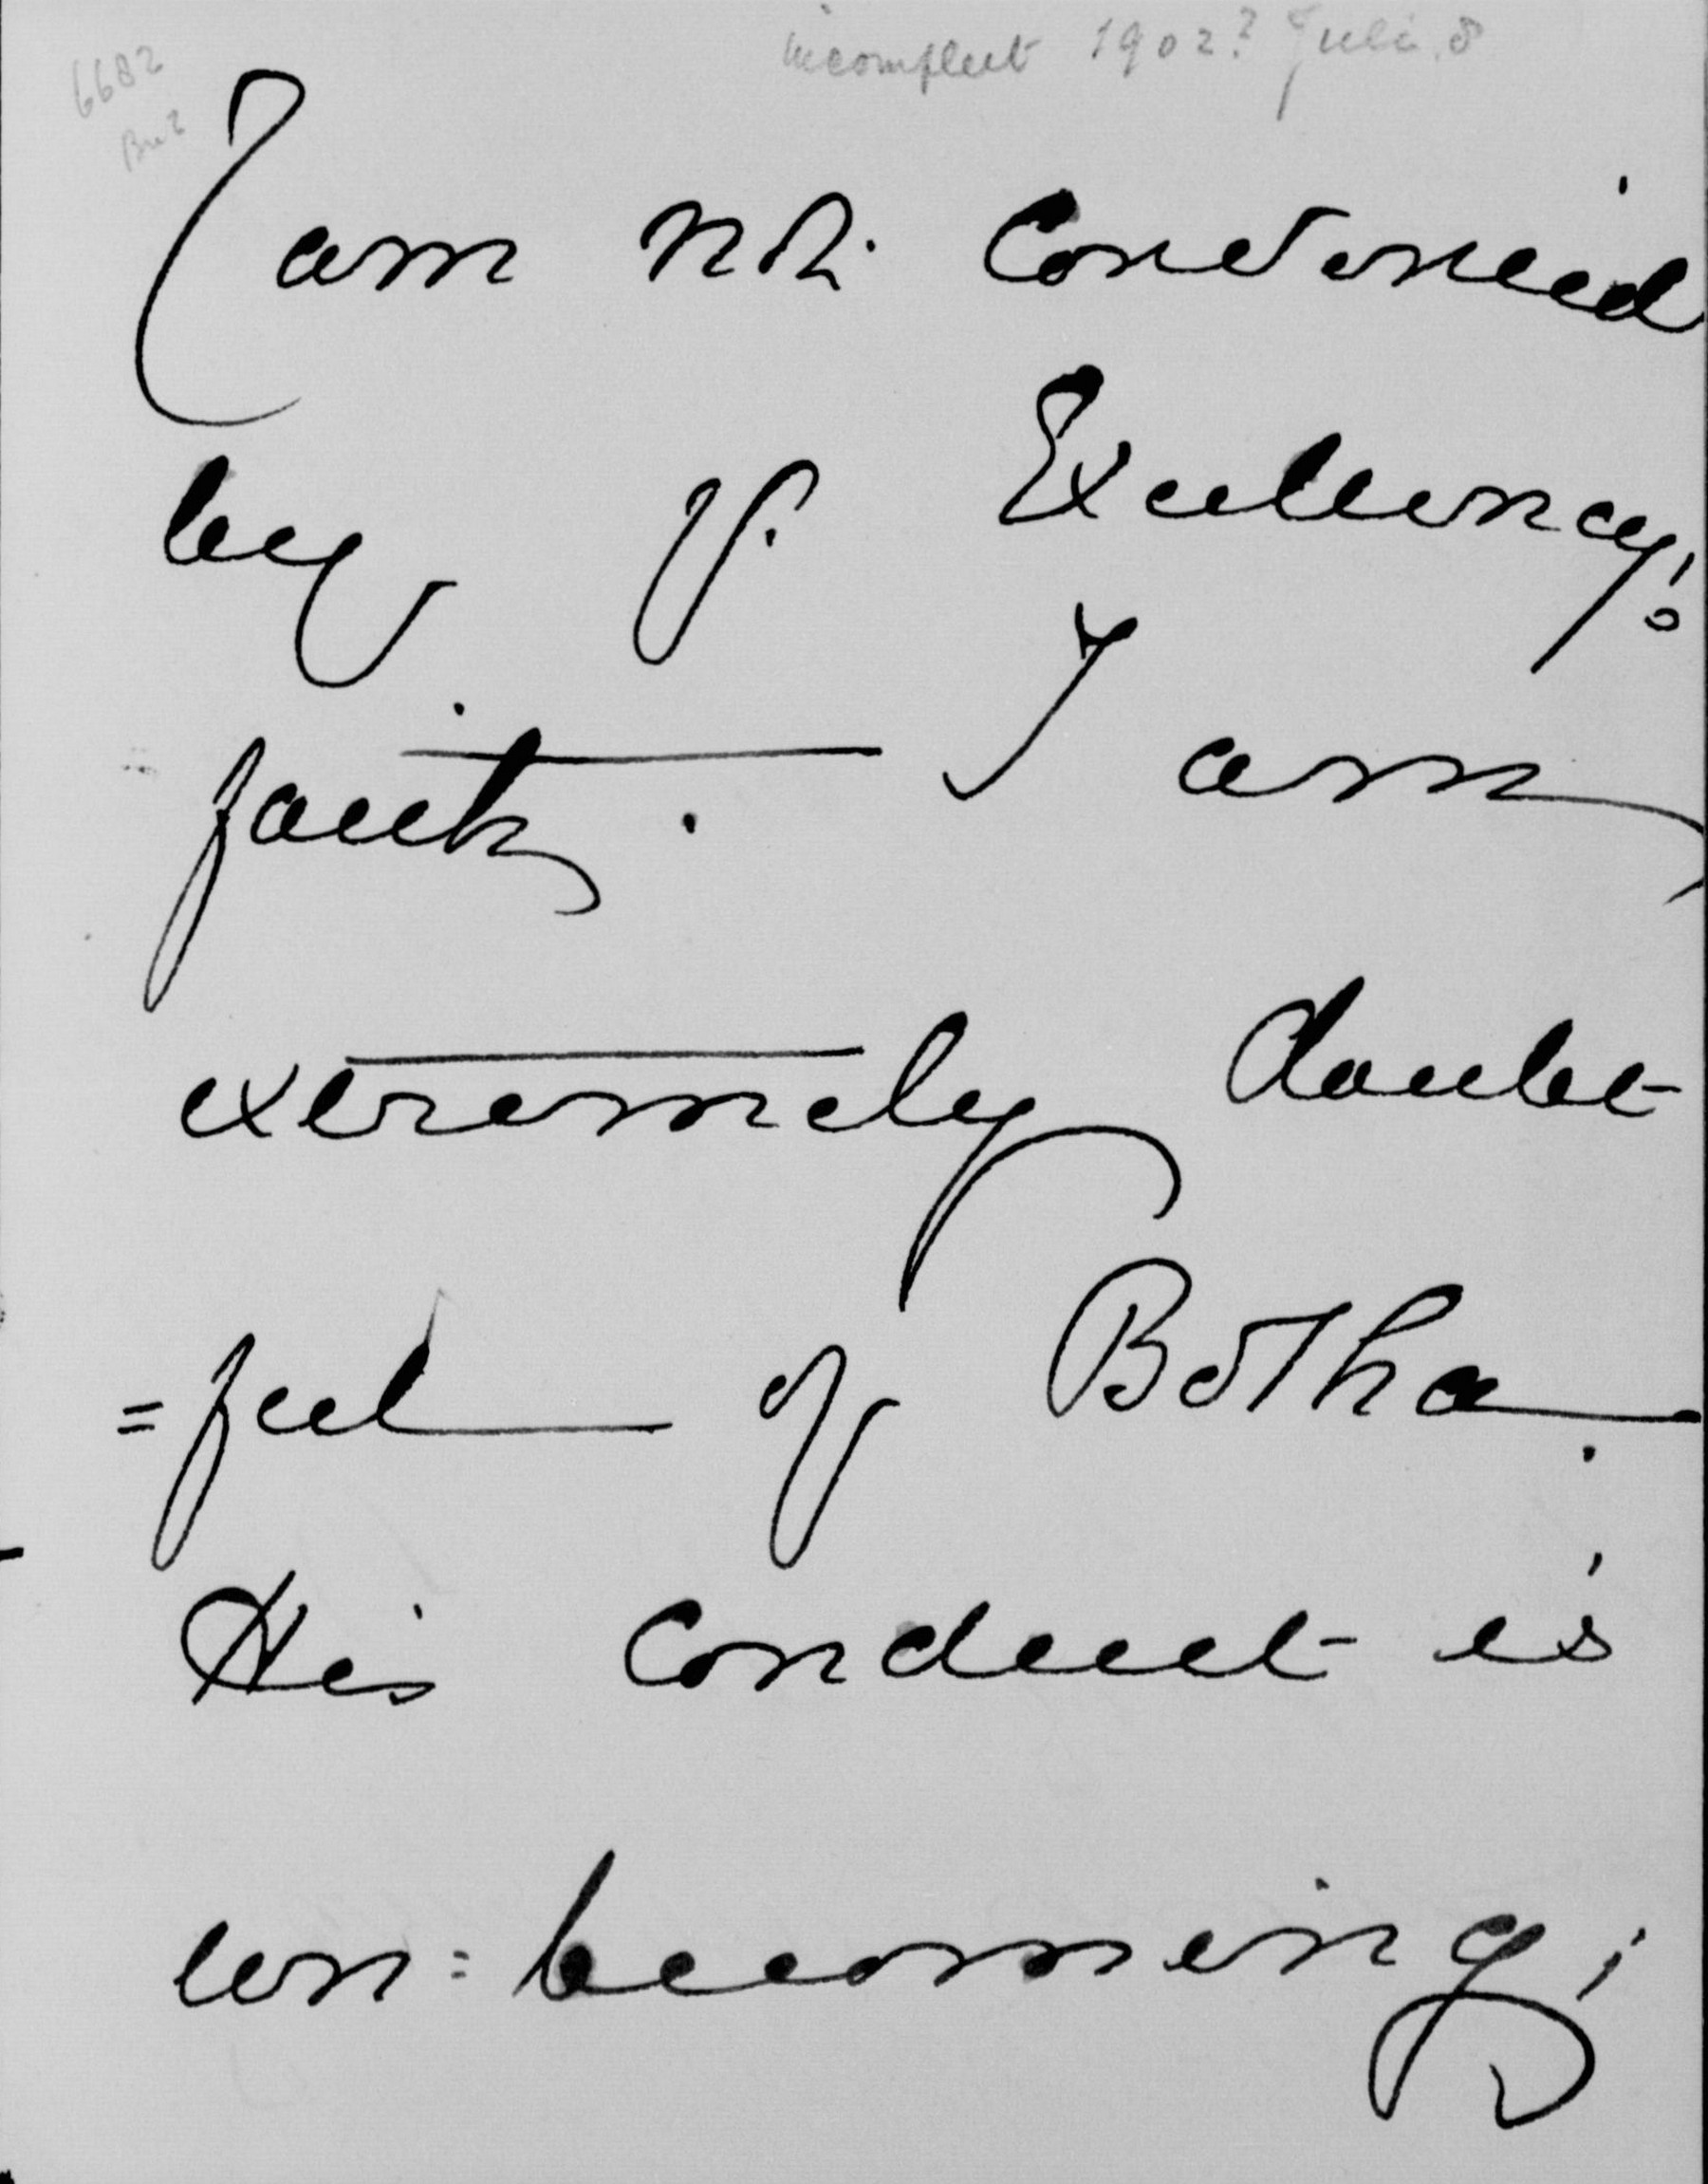 incompleet 1902? Juli. 8
6682
I am not convinced
by y. Excellency's
faith. I am
extremely doubt
=ful of Botha.
His conduct is
un=becoming;